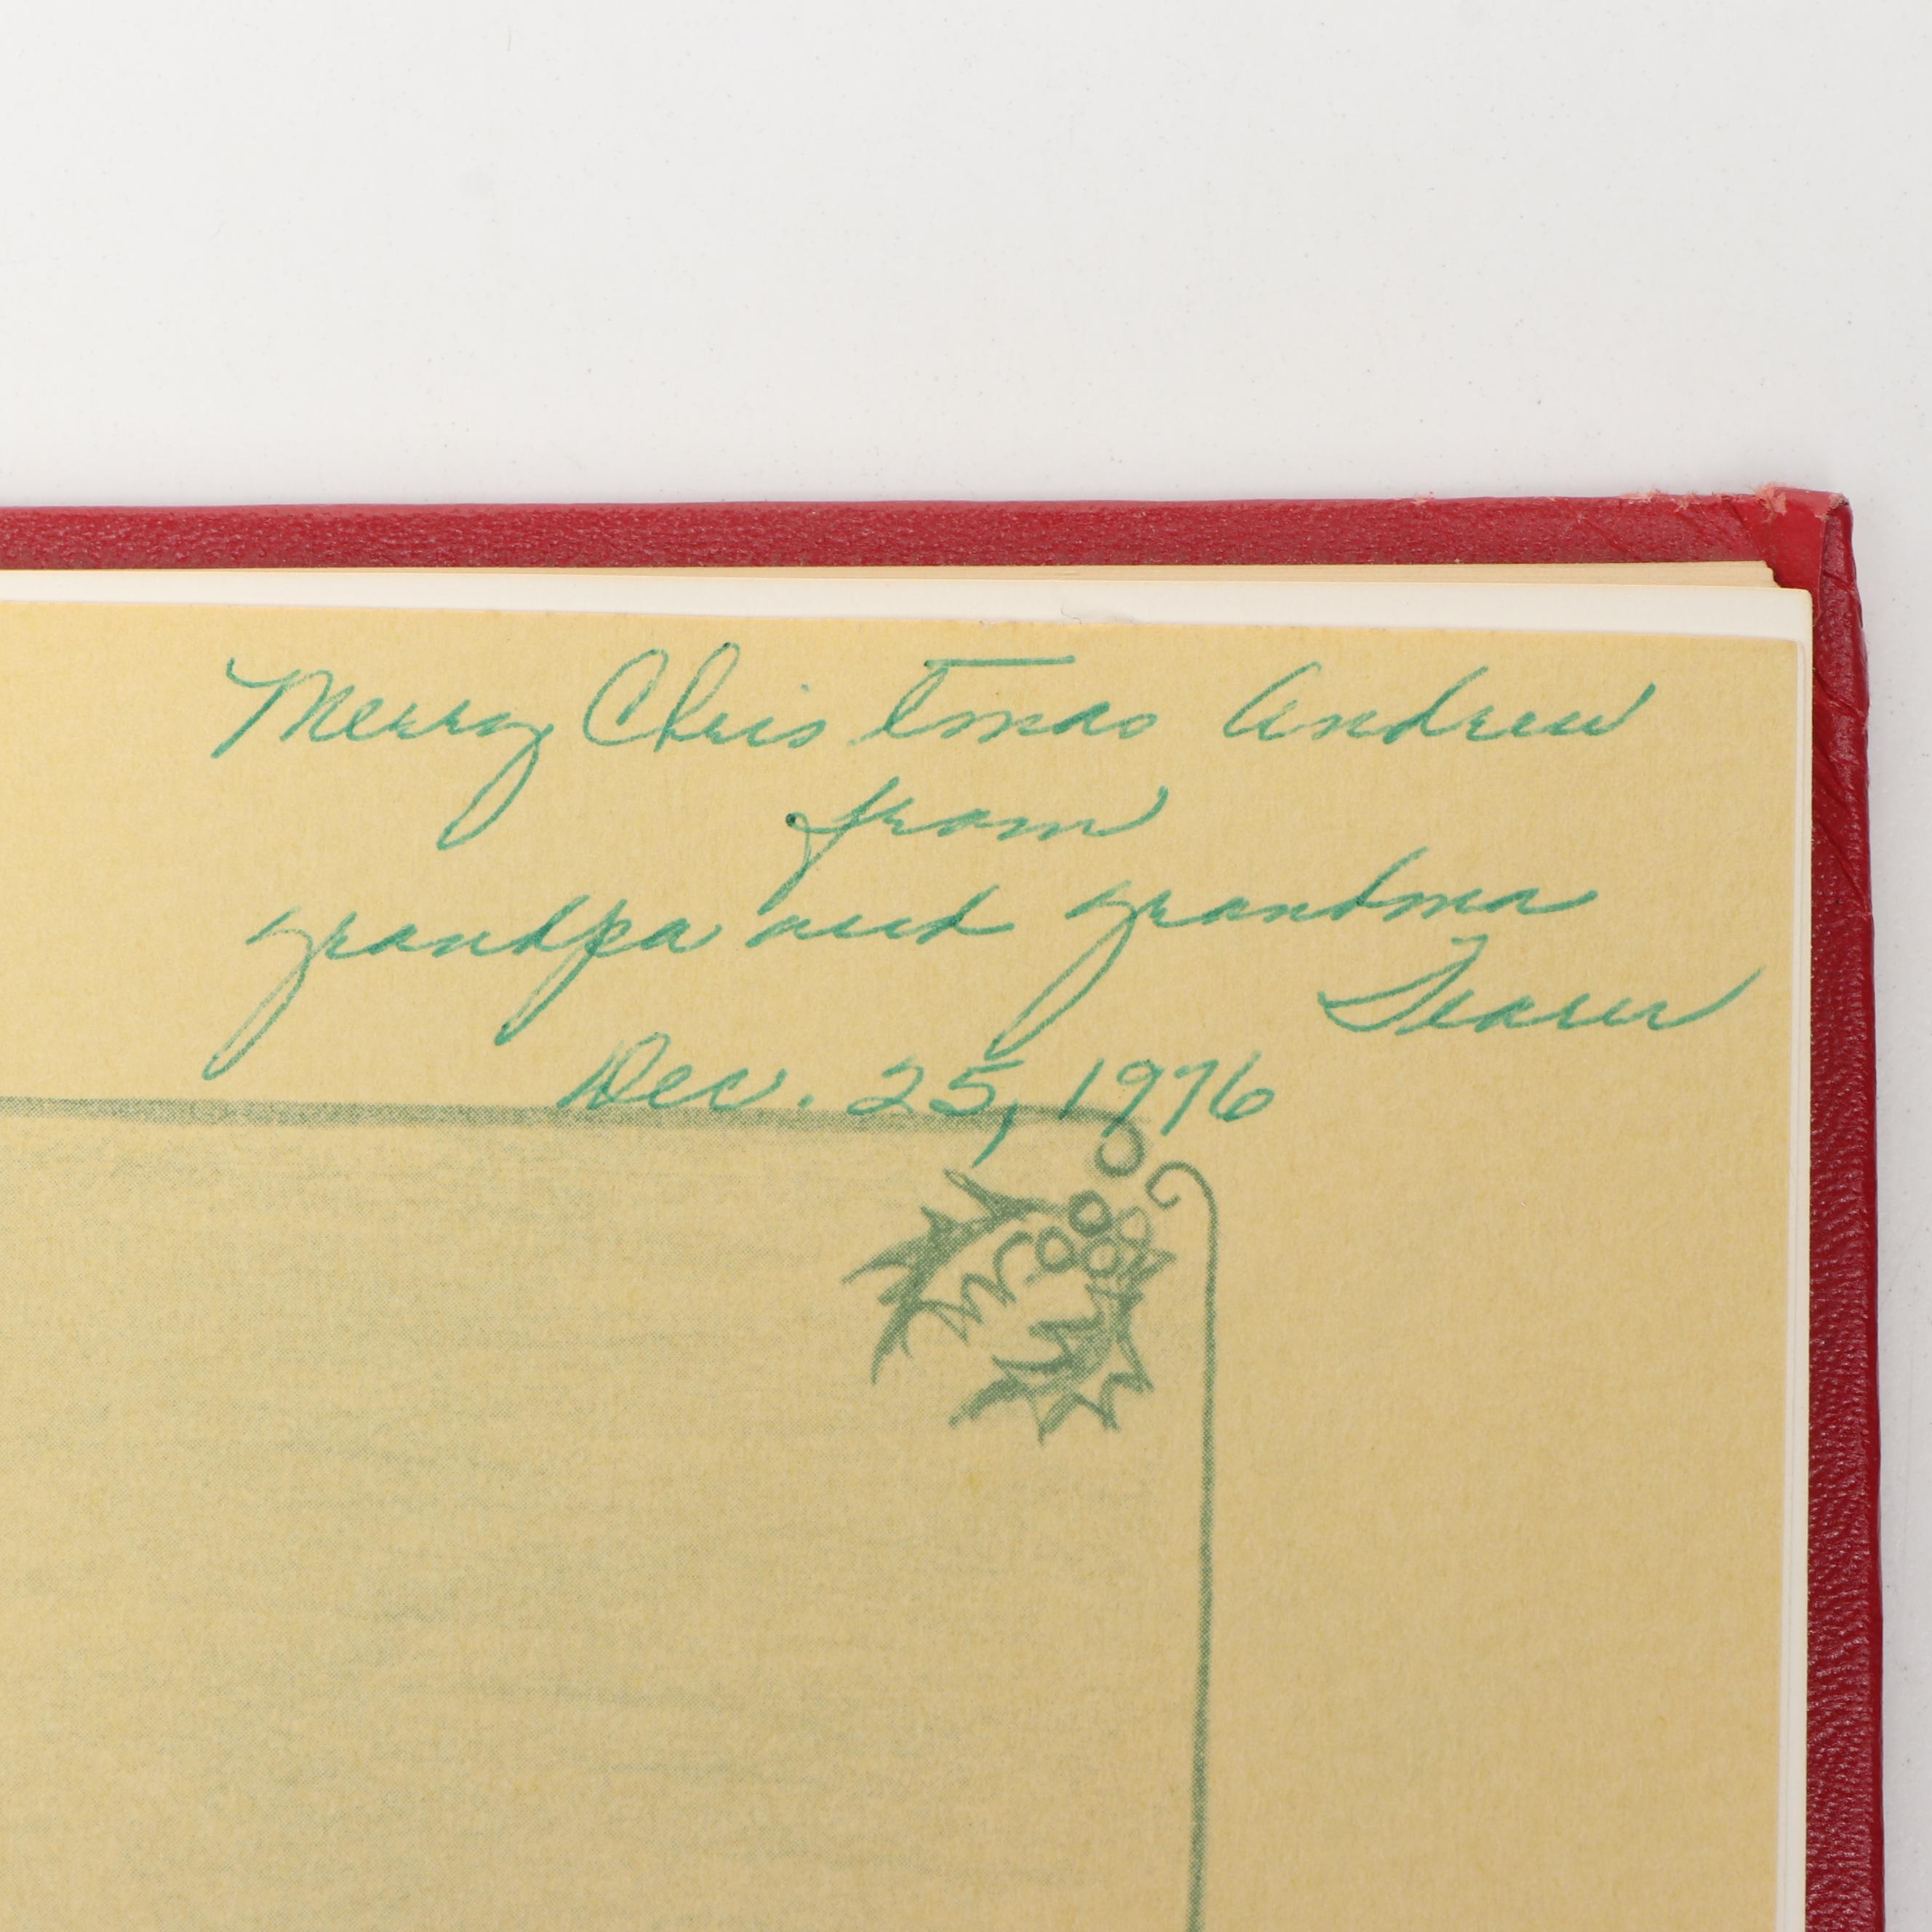 Merry Christmas Andrew
from
grandpa and grandma
Dec. 25, 1976